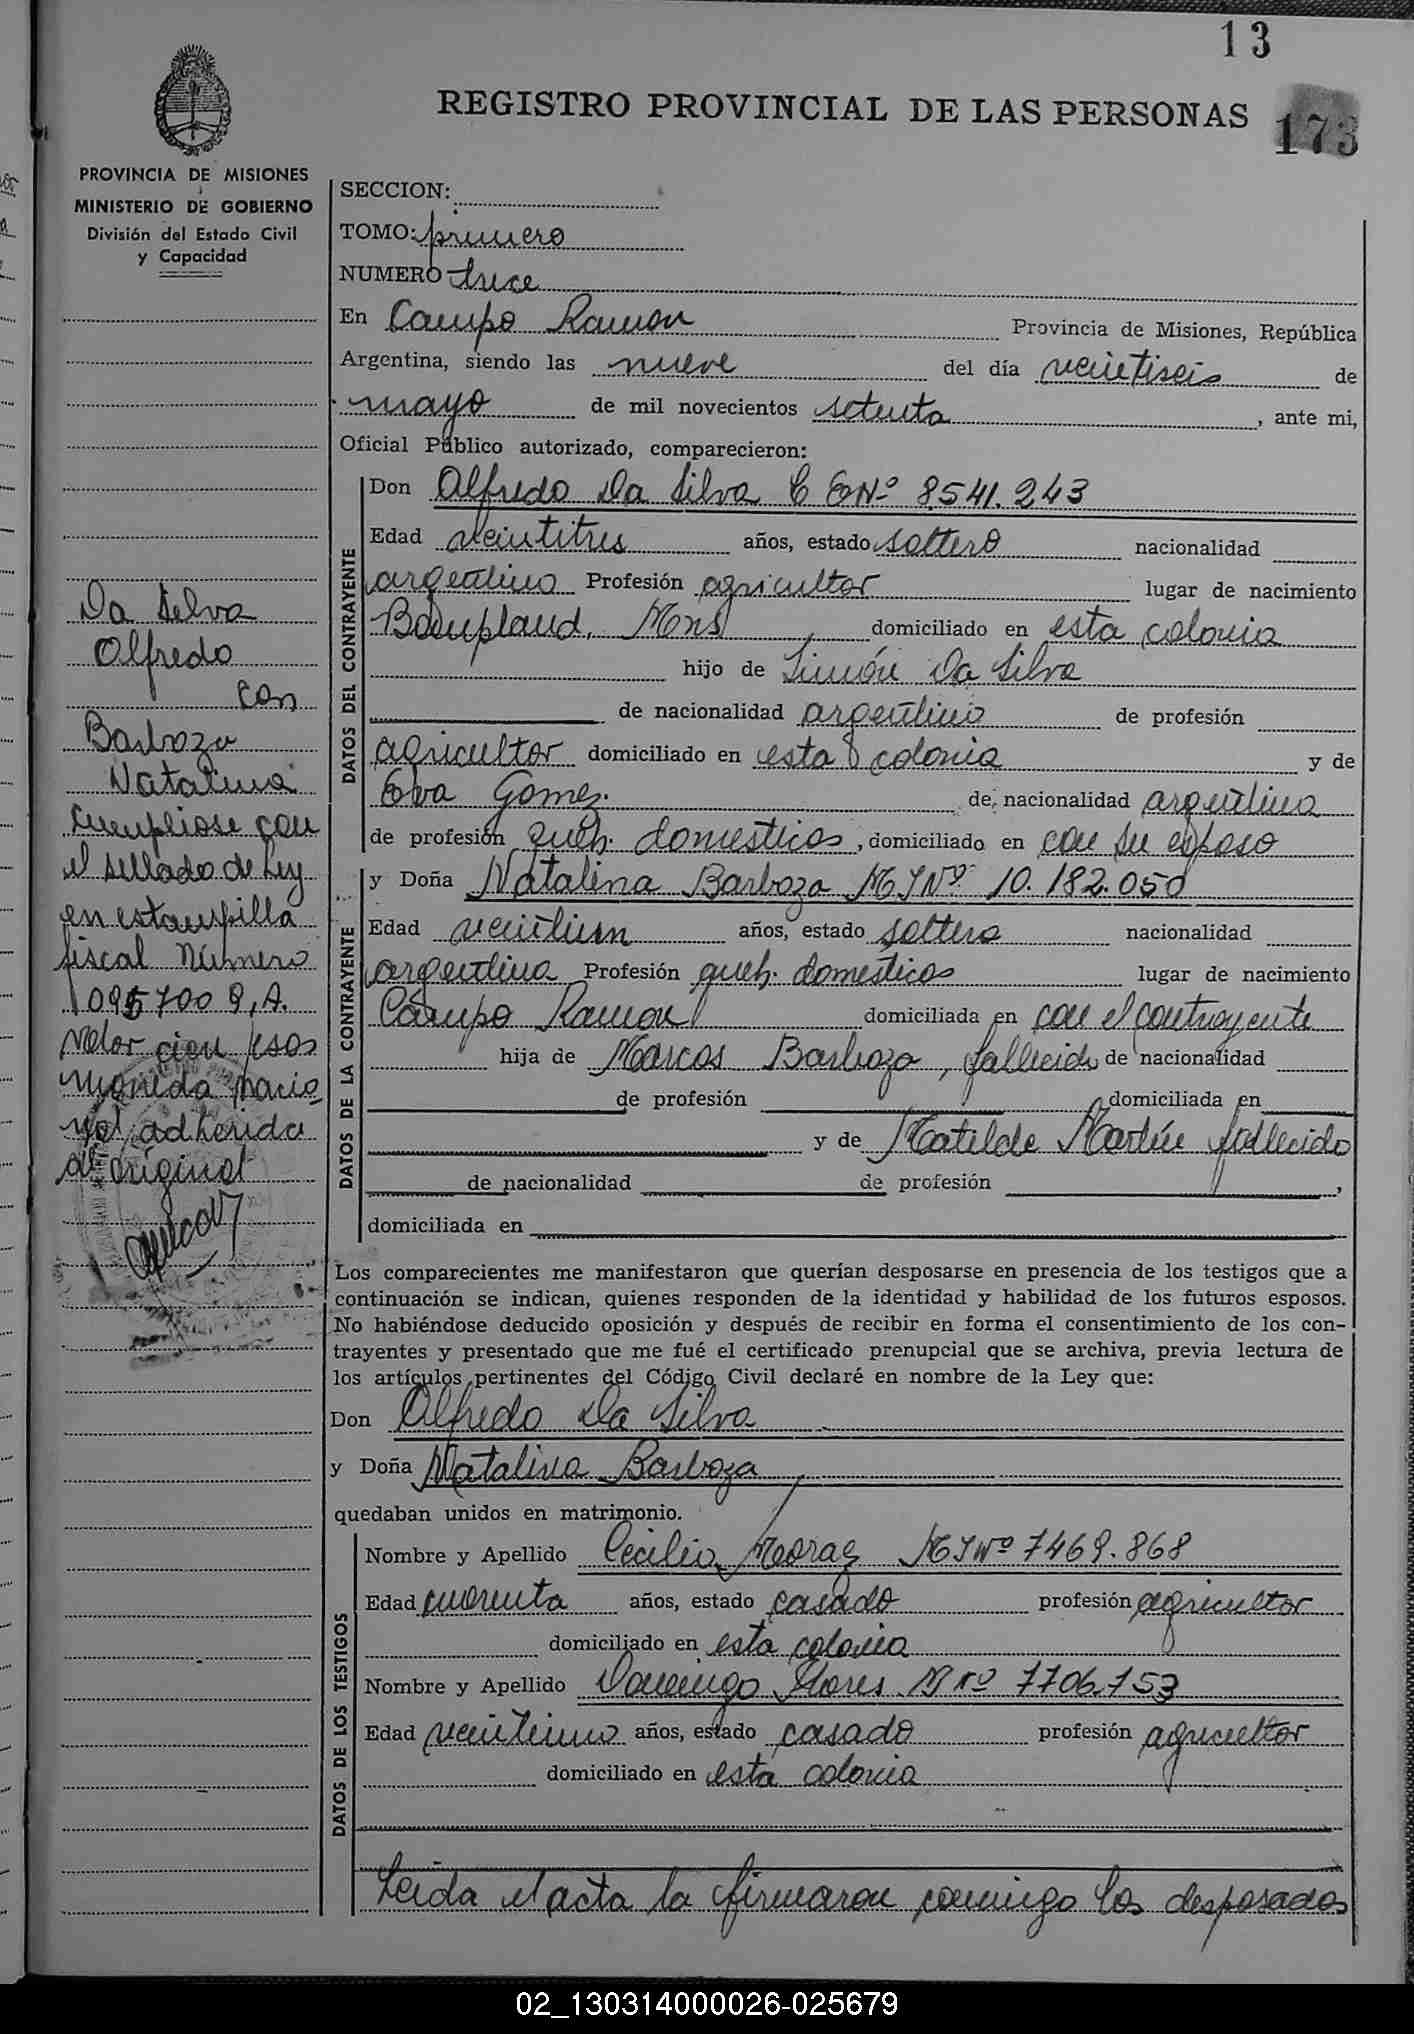 13
REGISTRO PROVINCIAL DE LAS PERSONAS
173
PROVINCIA DE MISIONES
MINISTERIO DE GOBIERNO
División del Estado Civil
y Capacidad
Da Silva
Alfredo
con
Barboza
Natalina
Cumpliose con
el sellado de Ley
en estampilla
fiscal Número
1095700 9, A.
Valor cien pesos
moneda nacio
nal, adherida
al original
SECCION:
TOMO: primero
NUMERO trece
En Campo Ramon Provincia de Misiones, República
Argentina, siendo las nueve del día veintiseis de
mayo de mil novecientos setenta, ante mi,
Oficial Público autorizado, comparecieron:
DATOS DEL CONTRAYENTE
Don Alfredo Da Silva C E Nº 8541.243
Edad veintitres años, estado soltero nacionalidad
argentino Profesión agricultor lugar de nacimiento
Bompland, Mns domiciliado en esta colonia
hijo de Simón Da Silva
de nacionalidad argentino de profesión
agricultor domiciliado en esta colonia y de
Elva Gomez. de nacionalidad argentina
de profesión queh. domesticos, domiciliado en con su esposo
DATOS DE LA CONTRAYENTE
y Doña Natalina Barboza M I Nº 10.182.050
Edad veintiun años, estado soltera nacionalidad
argentina Profesión queh. domesticos lugar de nacimiento
Campo Ramon domiciliada en con el contrayente
hija de Marcos Barboza, fallecido de nacionalidad
de profesión domiciliada en
y de Matilde Martín fallecido
de nacionalidad de profesión ,
domiciliada en
Los comparecientes me manifestaron que querían desposarse en presencia de los testigos que a
continuación se indican, quienes responden de la identidad y habilidad de los futuros esposos.
No habiéndose deducido oposición y después de recibir en forma el consentimiento de los con-
trayentes y presentado que me fué el certificado prenupcial que se archiva, previa lectura de
los artículos pertinentes del Código Civil declaré en nombre de la Ley que:
Don Alfredo Da Silva
y Doña Natalina Barboza
quedaban unidos en matrimonio.
DATOS DE LOS TESTIGOS
Nombre y Apellido Cecilio Moraez M I Nº 7469.868
Edad cuarenta años, estado casado profesión agricultor
domiciliado en esta colonia
Nombre y Apellido Domingo Flores M Nº 7706.153
Edad veintiuno años, estado casado profesión agricultor
domiciliado en esta colonia
Leida el acta la firmaron conmigo los desposados
02_130314000026-025679